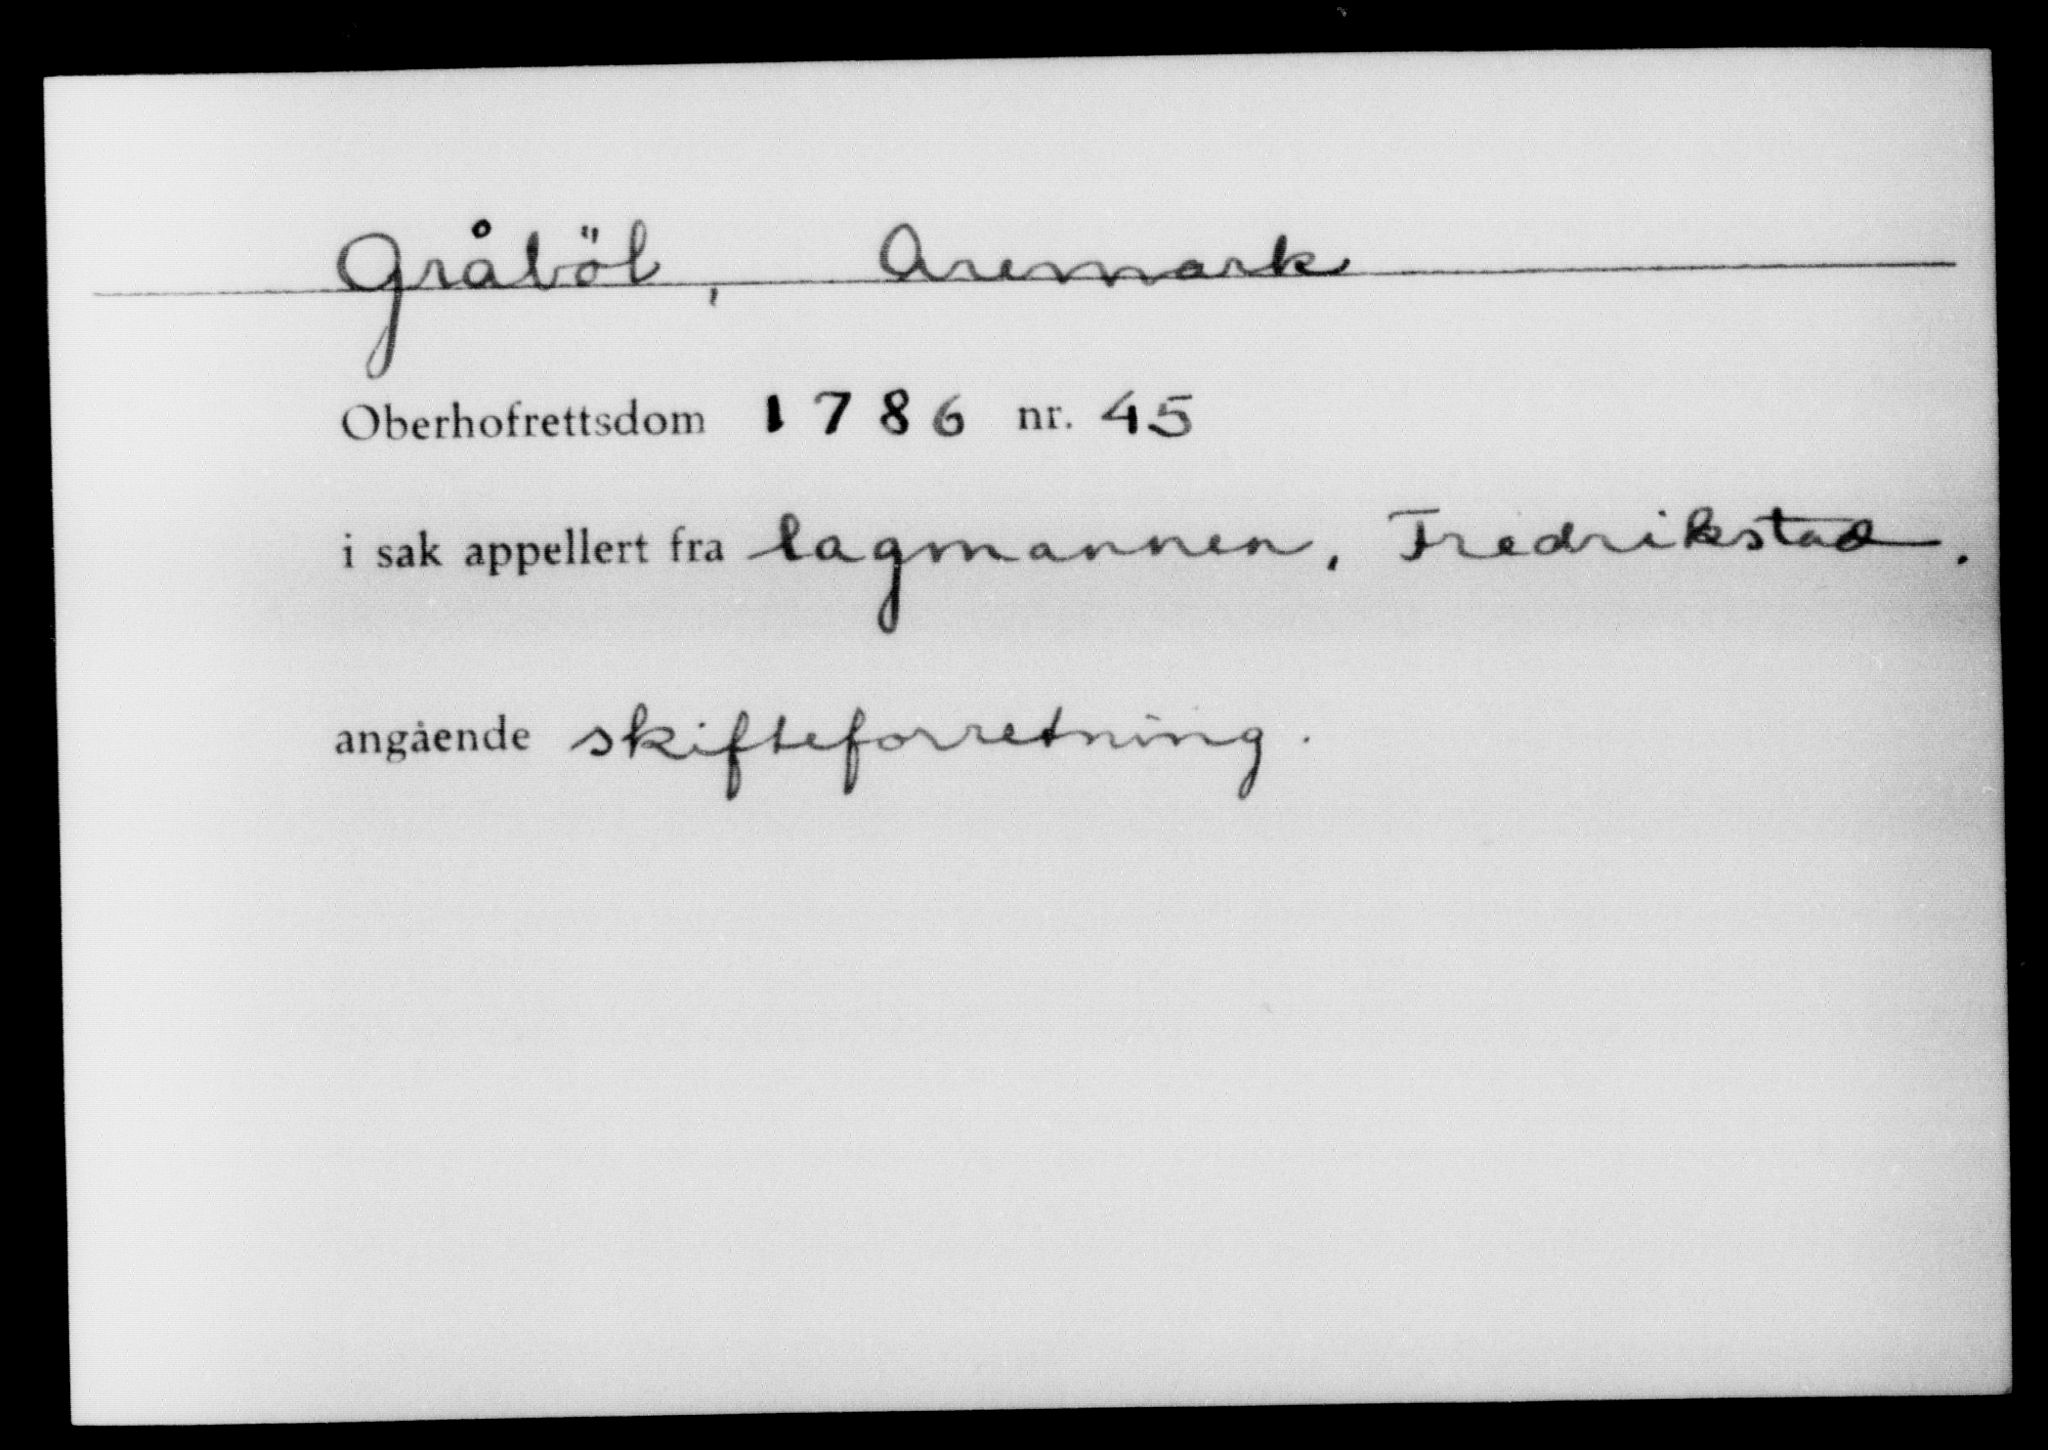 Gråböl, Aremark
Oberhofrettsdom 1786 nr. 45
i sak appellert fra lagmannen, Fredrikstad.
angående skifteforretning.